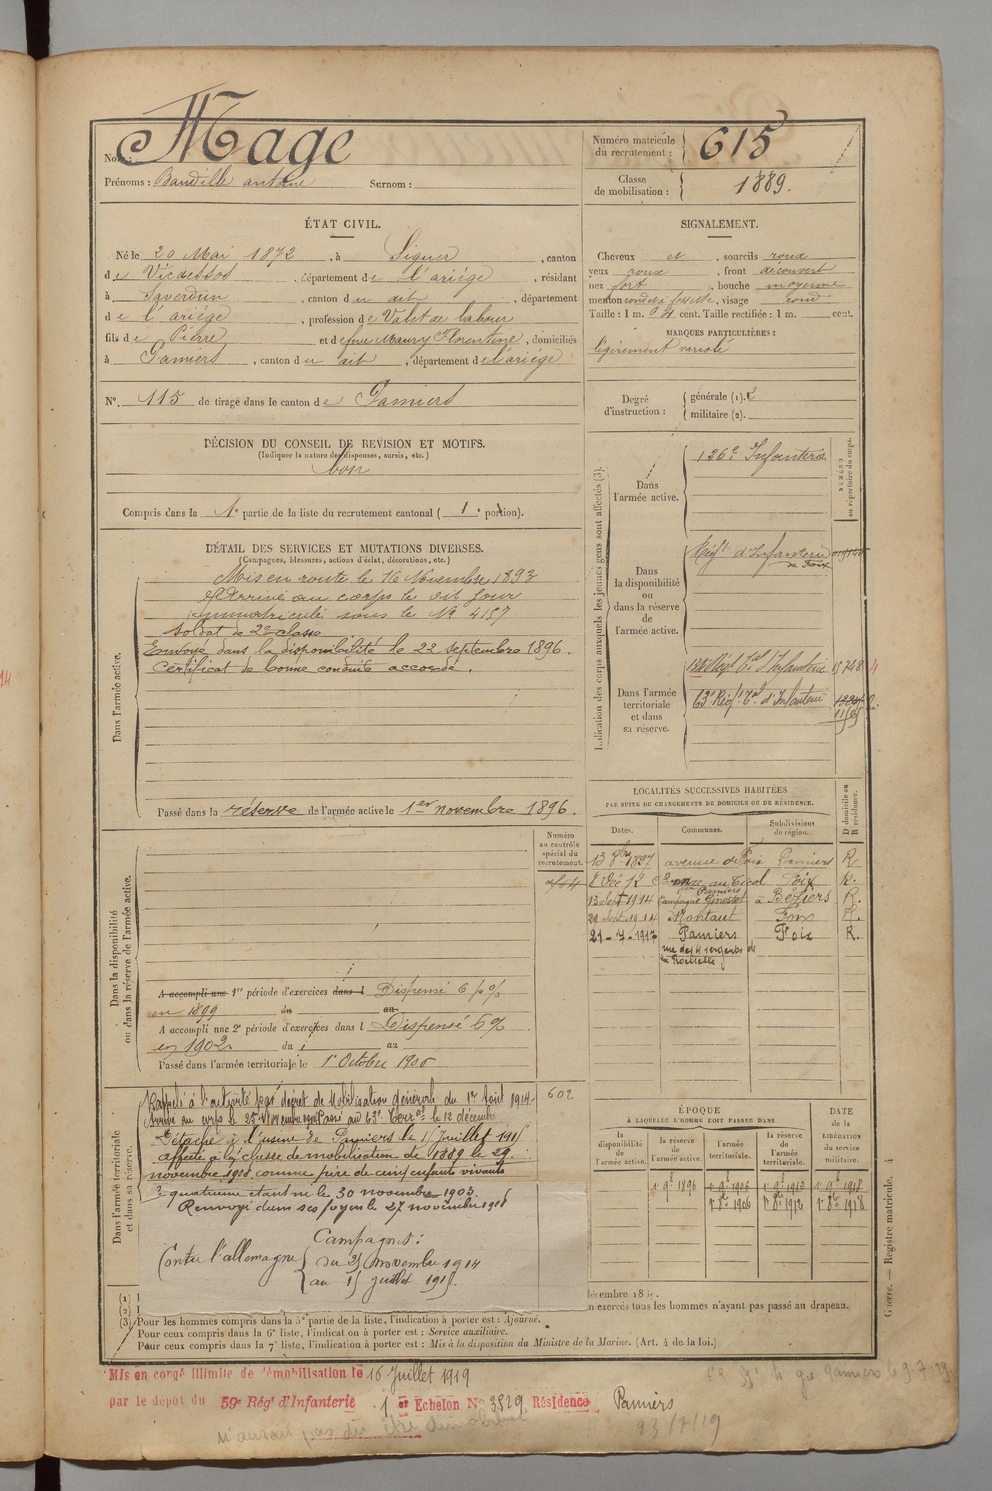 Nom : Mage
Prénoms : Baudille antoine Surnom :
Numéro matricule du recrutement : 615
Classe de mobilisation : 1889.
ÉTAT CIVIL.
Né le 20 Mai 1872, à Siguer, canton
de Vicdessos, département de l'ariége, résidant
à Saverdun, canton du dit, département
de l'ariége, profession de Valet de labour
fils de Pierre et de feue Maury Florentine, domiciliés
à Pamiers, canton du dit, département de l'ariége
N° 115 de tirage dans le canton de Pamiers
DÉCISION DU CONSEIL DE REVISION ET MOTIFS.
(Indiquer la nature des dispenses, sursis, etc.)
bon
Compris dans la 1e partie de la liste du recrutement cantonal (1e portion).
SIGNALEMENT.
Cheveux et, sourcils roux
yeux roux, front découvert
nez fort, bouche moyenne
menton rond à fossette, visage rond
Taille : 1 m. cent. Taille rectifiée : 1 m. cent.
MARQUES PARTICULIÈRES :
légèrement variolé
Degré d'instruction :
générale (1). 2
militaire (2).
DÉTAIL DES SERVICES ET MUTATIONS DIVERSES.
(Campagnes, blessures, actions d'éclat, décorations, etc.)
Dans l'armée active.
Mis en route le 16 Novembre 1893
Arrivé au corps le dit jour
Immatriculé sous le No 4157
Soldat de 2e classe
Envoyé dans la disponibilité le 22 septembre 1896.
Certificat de bonne conduite accordé.
Passé dans la réserve de l'armée active le 1er novembre 1896.
Indication des corps auxquels les jeunes gens sont affectés (3).
NUMÉRO au répertoire du corps.
Dans l'armée active.
126e Infanterie
Dans la disponibilité ou dans la réserve de l'armée active.
Régt d'Infanterie de Foix
Dans l'armée territoriale et dans sa réserve.
Régt Tal d'Infanterie
63e Régt Tal d'Infanterie
LOCALITÉS SUCCESSIVES HABITÉES
PAR SUITE DE CHANGEMENTS DE DOMICILE OU DE RÉSIDENCE.
Dates. Communes. Subdivisions de région. D domicile ou R résidence.
13 9bre 1897 avenue de Foix Pamiers R.
8 Déc 12 Foix R.
Pamiers
13 Sept 1914 Campagne à Béziers R.
29 Sept 1914 Montaut Foix R.
21-7-1917 Pamiers Foix R.
rue des 4 sergents de
la Rochelle
Numéro au contrôle spécial du recrutement.
Dans la disponibilité ou dans la réserve de l'armée active.
A accompli une 1re période d'exercices dans l Dispensé 6 p %
en 1899 du au
A accompli une 2e période d'exercices dans l Dispensé 6 %
en 1902 du au
Passé dans l'armée territoriale le 1er Octobre 1906
602
Dans l'armée territoriale et dans sa réserve.
Rappelé à l'activité par décret de Mobilisation Générale du 1er Août 1914
Arrivé au corps le 25 Novembre Passé au 63e Terr. le 12 décembre
Détaché à l'usine de Pamiers le 15 Juillet 1915
affecté à la classe de mobilisation de 1889 le 29
novembre 1918 comme père de cinq enfants vivants
quatrième étant né le 30 novembre 1903.
Renvoyé dans ses foyers le 27 novembre 1918
Campagnes :
Contre l'allemagne du 25 novembre 1914
au 15 juillet 1915.
ÉPOQUE
À LAQUELLE L'HOMME DOIT PASSER DANS
la disponibilité de l'armée active. la réserve de l'armée active. l'armée territoriale. la réserve de l'armée territoriale. DATE DE LA LIBÉRATION du service militaire.
1er 9bre 1896 1er 9bre 1906 1er 9bre 1912 1er 9bre 1918
1er 8bre 1906 1er 8bre 1912 1er 8bre 1918
(1)
(2)
n exercés tous les hommes n'ayant pas passé au drapeau.
(3) Pour les hommes compris dans la 5e partie de la liste, l'indication à porter est : Ajourné.
Pour ceux compris dans la 6e liste, l'indication à porter est : Service auxiliaire.
Pour ceux compris dans la 7e liste, l'indication à porter est : Mis à la disposition du Ministre de la Marine. (Art. 4 de la loi.)
Guerre. — Registre matricule. 4
Mis en congé illimité de démobilisation le 16 Juillet 1919
par le dépôt du 59e Régt d'Infanterie 1er Echelon No 3529 Résidence Pamiers
n'aurait pas dû être démobilisé
23/7/19